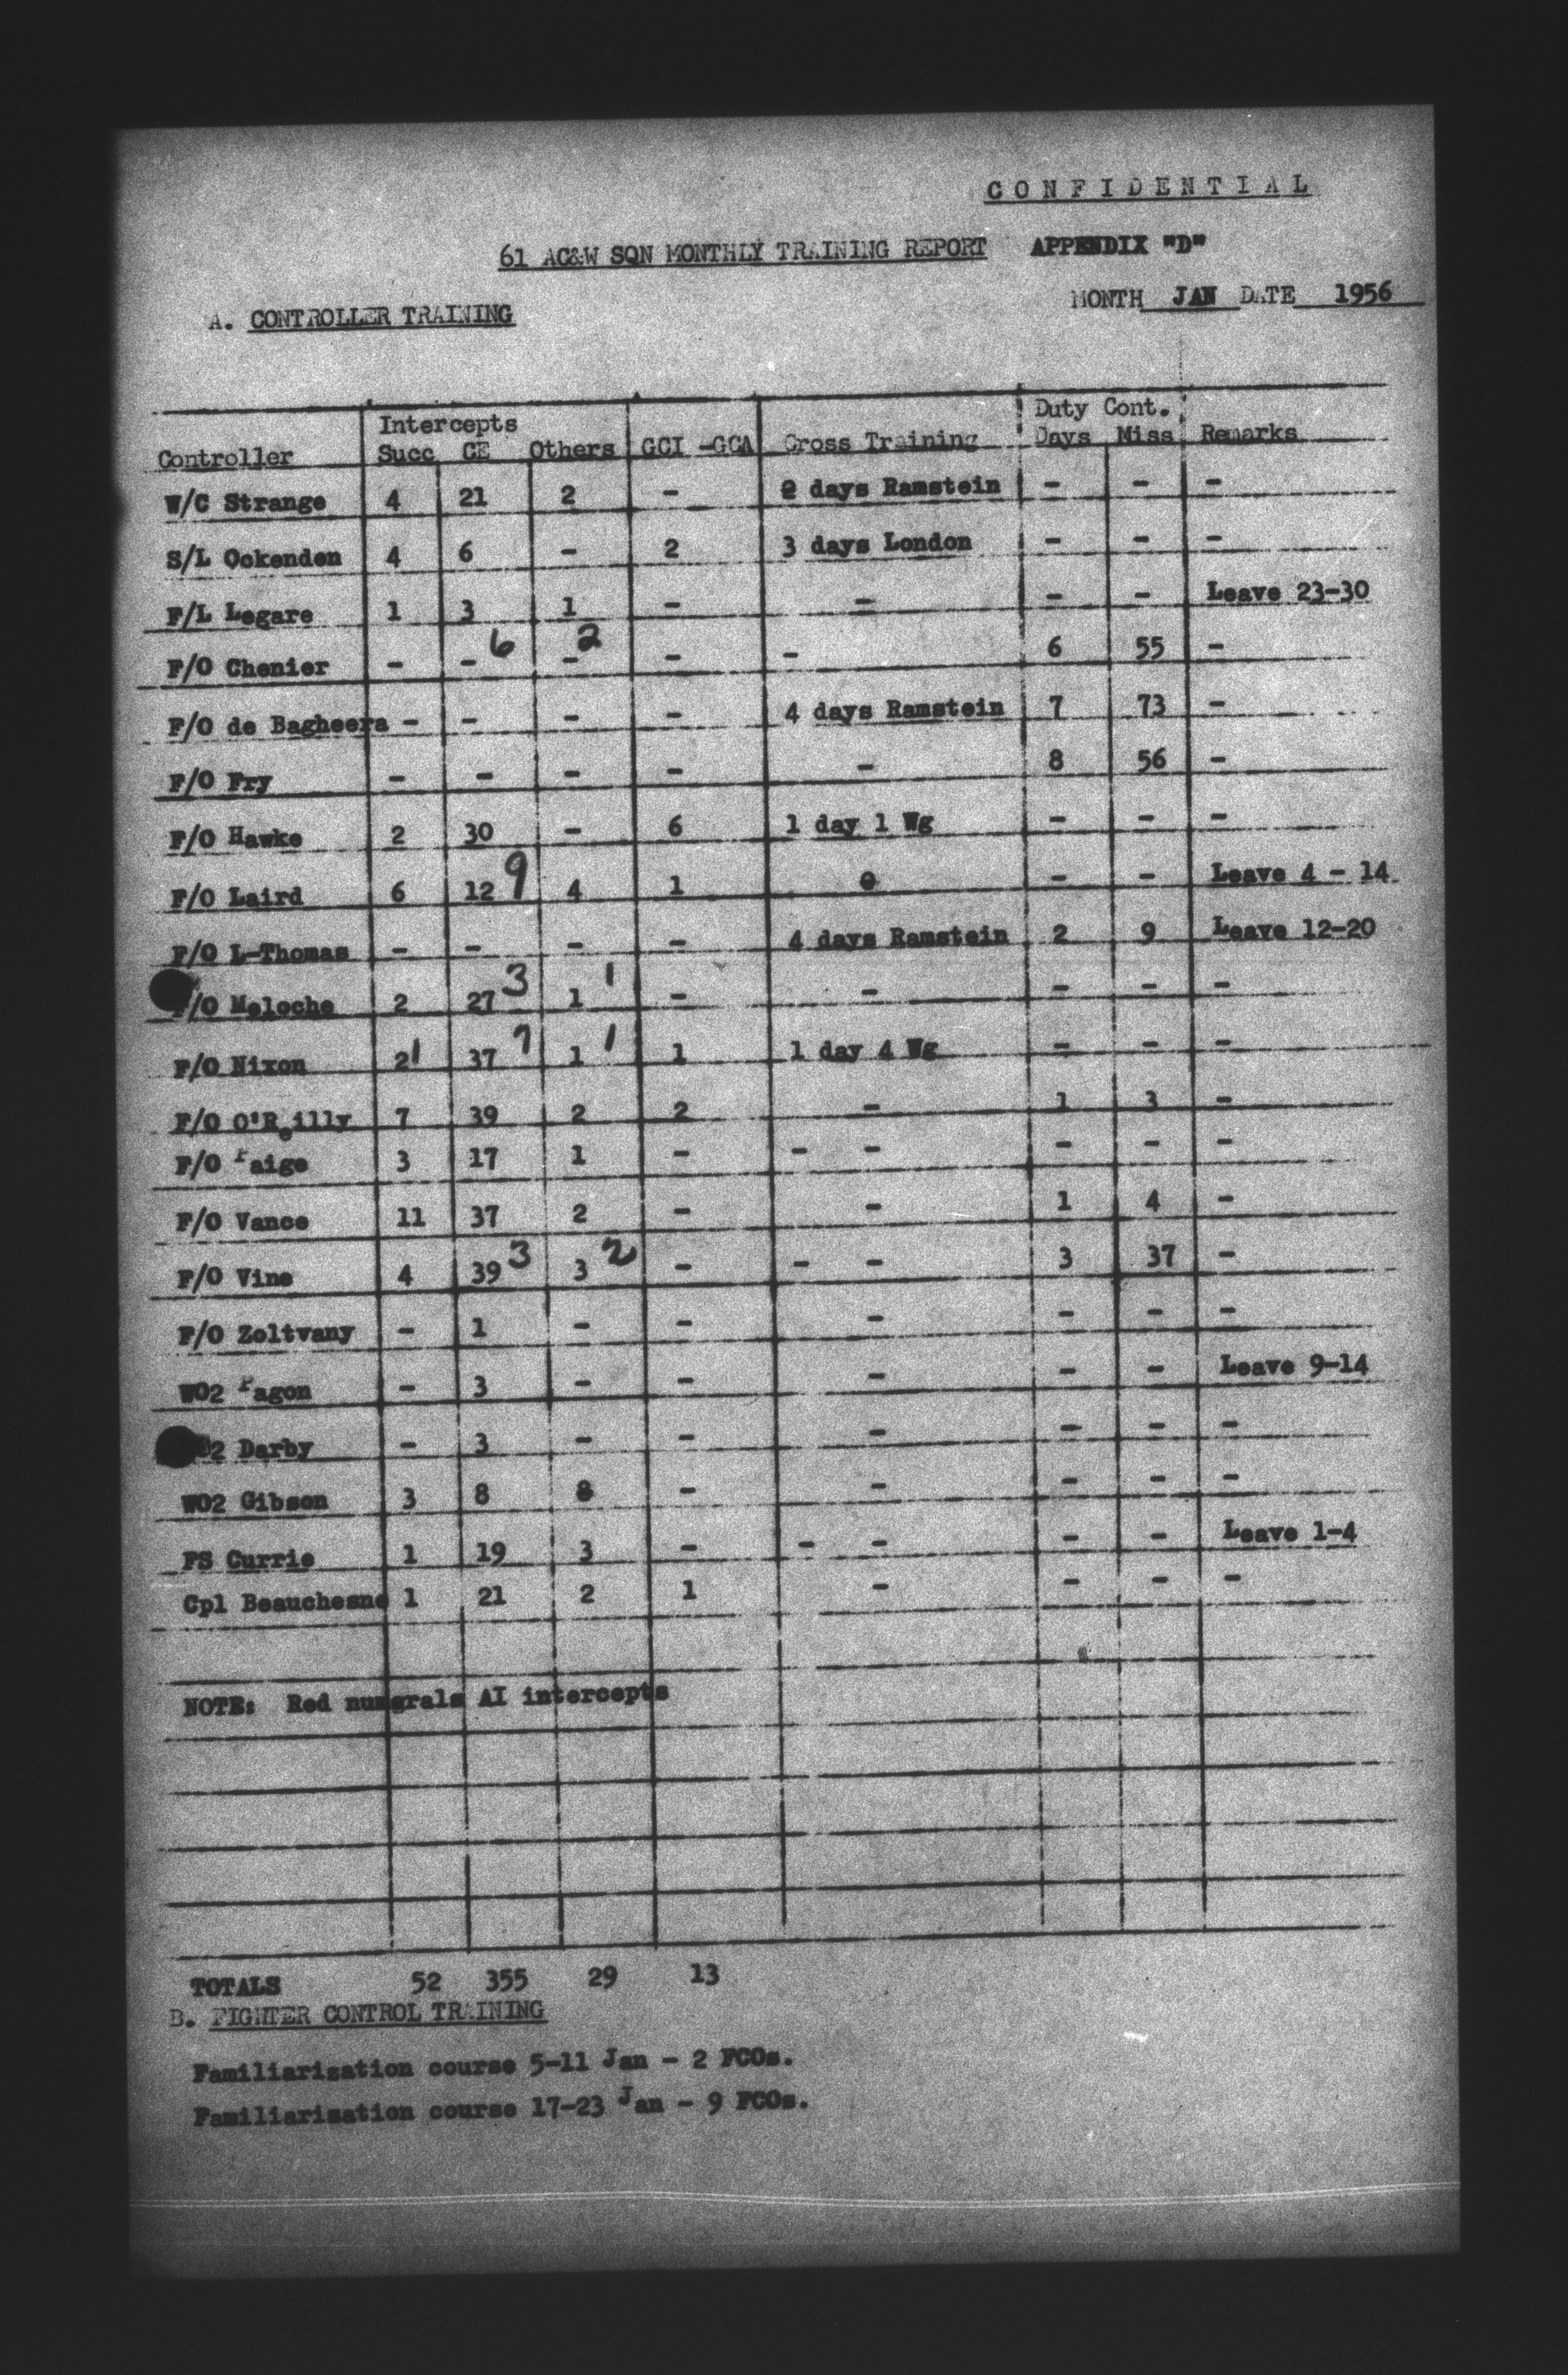 CONFIDENTIAL
61 AC&W SQN MONTHLY TRAINING REPORT APPENDIX "D"
MONTH JAN DATE 1956
A. CONTROLLER TRAINING
Intercepts Duty Cont.
Controller Succ CE Others GCI -GCA Cross Training Days Miss Remarks
W/C Strange 4 21 2 - 2 days Ramstein - - -
S/L Ockenden 4 6 - 2 3 days London - - -
F/L Legare 1 3 1 - - - - Leave 23-30
F/O Chenier - - 6 - 2 - - 6 55 -
F/O de Bagheera - - - - 4 days Ramstein 7 73 -
F/O Fry - - - - - 8 56 -
F/O Hawke 2 30 - 6 1 day 1 Wg - - -
F/O Laird 6 12 9 4 1 - - Leave 4 - 14
F/O L-Thomas - - - - 4 days Ramstein 2 9 Leave 12-20
F/O Meloche 2 27 3 1 1 - - - - -
F/O Nixon 2 1 37 7 1 1 1 1 day 4 Wg - - -
F/O O'Reilly 7 39 2 2 - 1 3 -
F/O Paige 3 17 1 - - - - - -
F/O Vance 11 37 2 - - 1 4 -
F/O Vine 4 39 3 3 2 - - - 3 37 -
F/O Zoltvany - 1 - - - - - -
WO2 Fagon - 3 - - - - - Leave 9-14
2 Darby - 3 - - - - - -
WO2 Gibson 3 8 8 - - - - -
FS Currie 1 19 3 - - - - - Leave 1-4
Cpl Beauchesne 1 21 2 1 - - - -
NOTE: Red numerals AI intercepts
TOTALS 52 355 29 13
B. FIGHTER CONTROL TRAINING
Familiarization course 5-11 Jan - 2 FCOs.
Familiarization course 17-23 Jan - 9 FCOs.